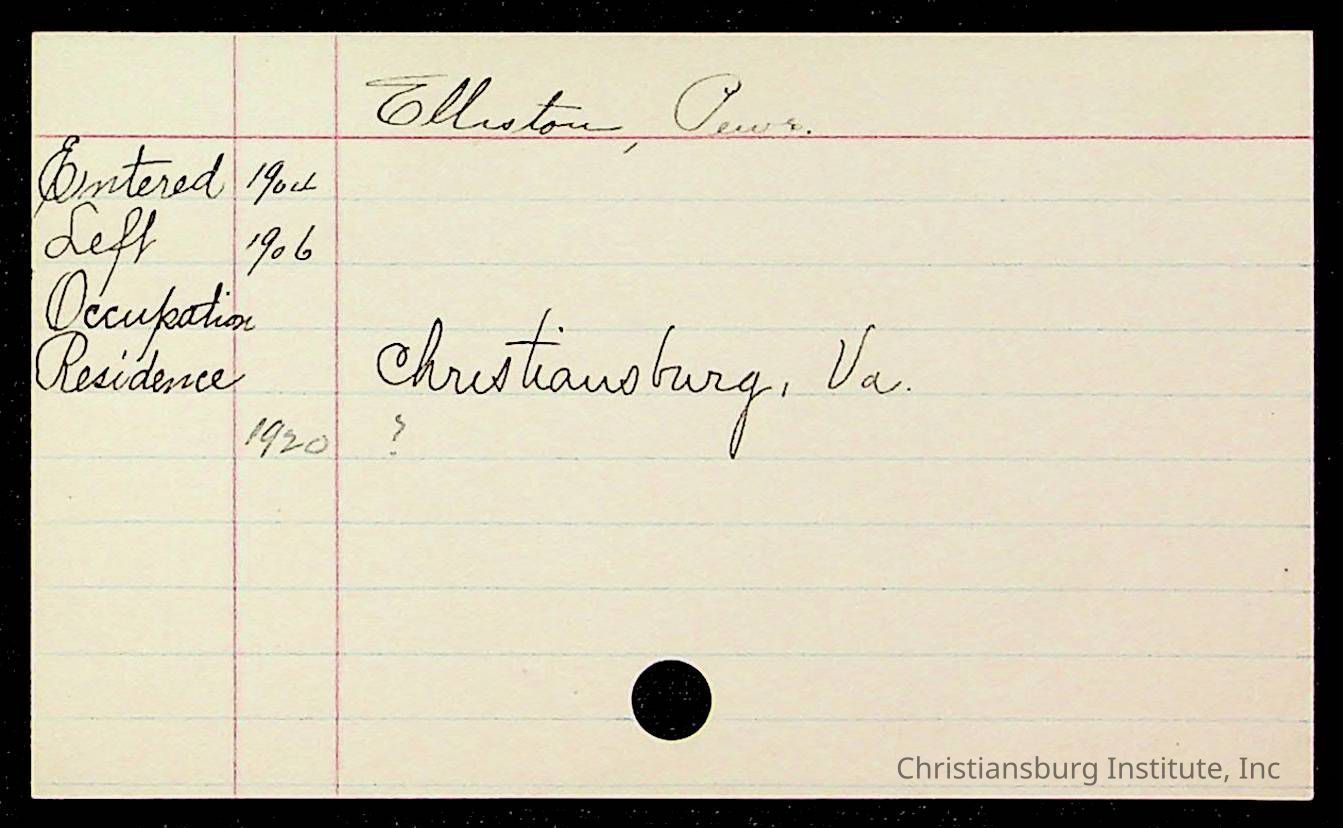 Elliston,
Entered 1904
Left 1906
Occupation
Residence Christiansburg, Va.
1920 ?
Christiansburg Institute, Inc